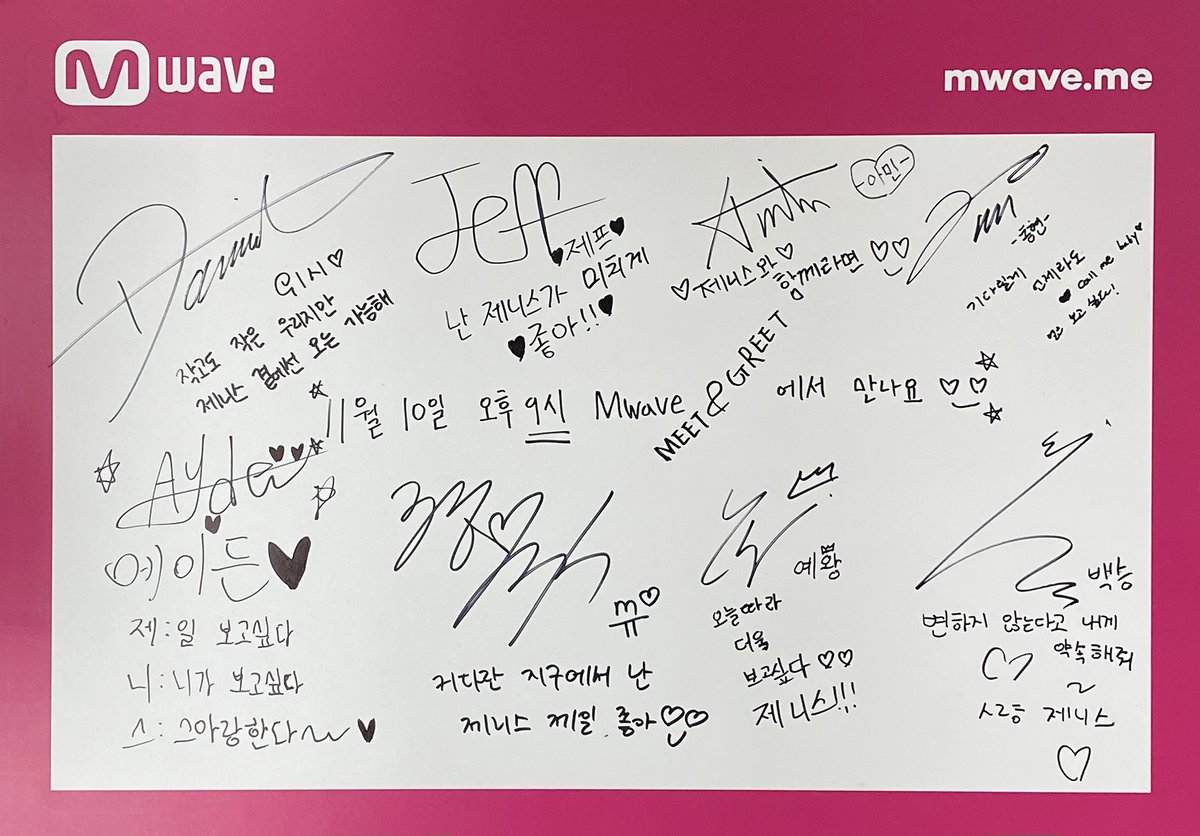 M wave
mwave.me
위시♡
작고도 작은 우리지만
제니스 곁에선 모든 가능해
Jeff
♥제프♥
난 제니스가 미치게
♥좋아!!♥
Amin
-아민-
♡제니스와♡
함께라면 ♡♡
-종현-
기다릴게 언제라도
♥ call me baby♥
보고 싶다!
11월 10일 오후 9시 Mwave MEET & GREET 에서 만나요 ♡♡
Ayden
에이든♥
제:일 보고싶다
니:니가 보고싶다
스:스아랑한다~ ♥
뮤♡
커다란 지구에서 난
제니스 제일 좋아♡♡
예왕
오늘따라
더욱
보고싶다 ♡♡
제니스!!!
백승
변하지 않는다고 내게
약속해줘
~
제니스
♡